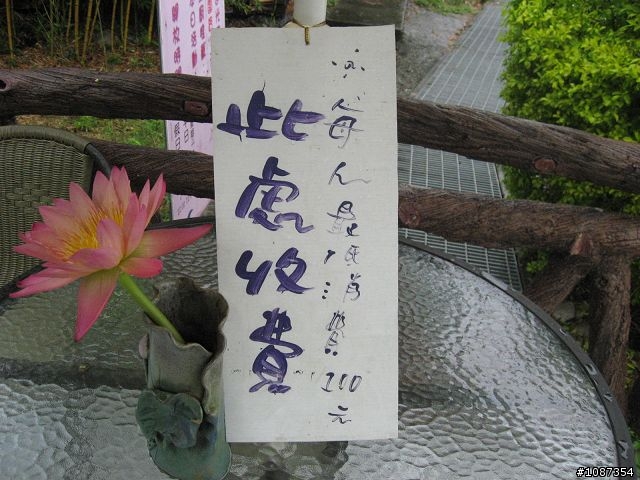 ※每人最低消費100元
此處收費
#1087354